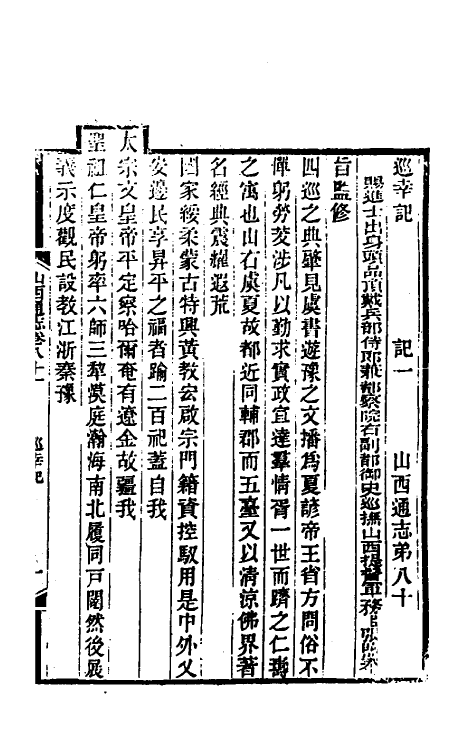 巡幸記　記一　山西通志第八十
賜進士出身頭品頂戴兵部侍郎兼都察院右副都御史巡撫山西提督軍務
旨監修
四巡之典肇見虞書遊豫之文播爲夏諺帝王省方問俗不
憚躬勞茇涉凡以勤求實政宣達羣情胥一世而躋之仁壽
之寓也山右虞夏故都近同輔郡而五臺又以清涼佛界著
名經典震耀遐荒
國家綏柔蒙古特興黃教宏啟宗門籍資控馭用是中外乂
安邊民享昇平之福者踰二百祀蓋自我
太宗文皇帝平定察哈爾奄有遼金故疆我
聖祖仁皇帝躬率六師三犂漠庭瀚海南北履同戸闥然後展
義示度觀民設教江浙秦豫
山西通志卷八十一　巡幸記　一